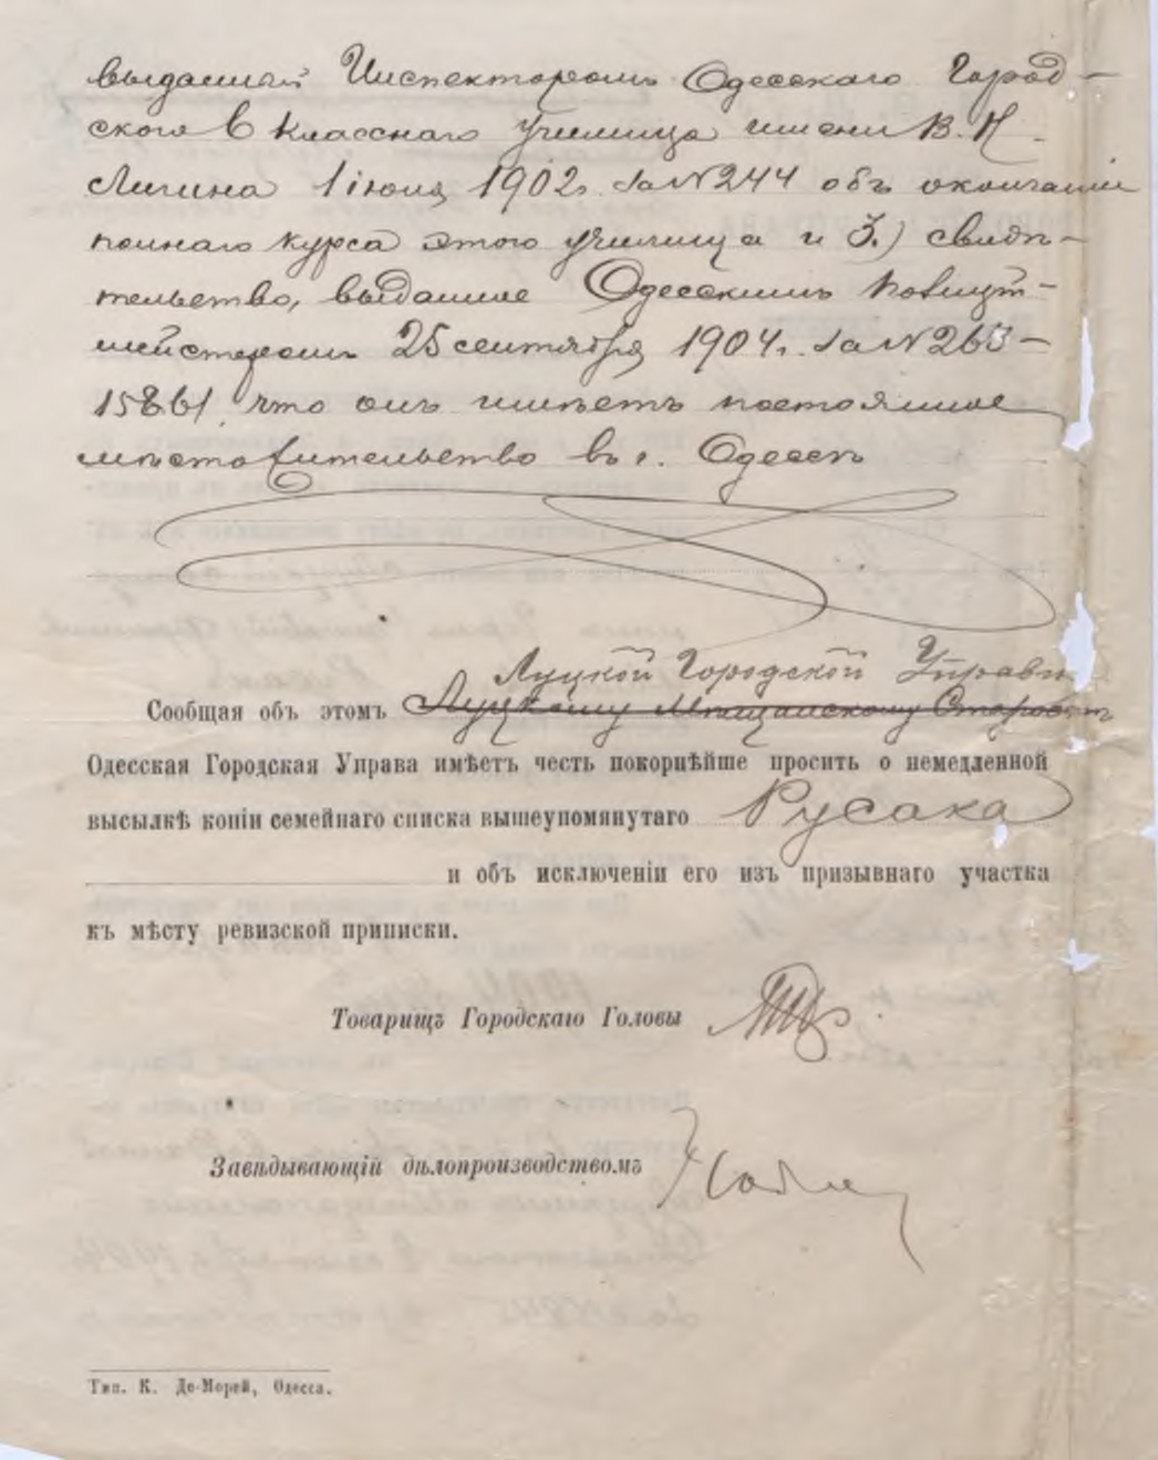 выданный Инспекторомъ Одесскаго Город-
ского 6 класснаго училища имени В. Н.
Лигина 1 іюля 1902 г. за № 244 объ окончаніи
полнаго курса этого училища и 3.) свидѣ-
тельство, выданное Одесскимъ Полицій-
мейстеромъ 25 сентября 1904 г. за № 263-
15861 что онъ имѣетъ постоянное
мѣстожительство въ г. Одессѣ
Луцкой Городской Управѣ
Сообщая объ этомъ Луцкому Мѣщанскому Старостѣ
Одесская Городская Управа имѣетъ честь покорнѣйше просить о немедленной
высылкѣ копіи семейнаго списка вышеупомянутаго Русака
и объ исключеніи его изъ призывнаго участка
къ мѣсту ревизской приписки.
Товарищъ Городскаго Головы
Завѣдывающій дѣлопроизводствомъ
Тип. К. Де-Морей, Одесса.